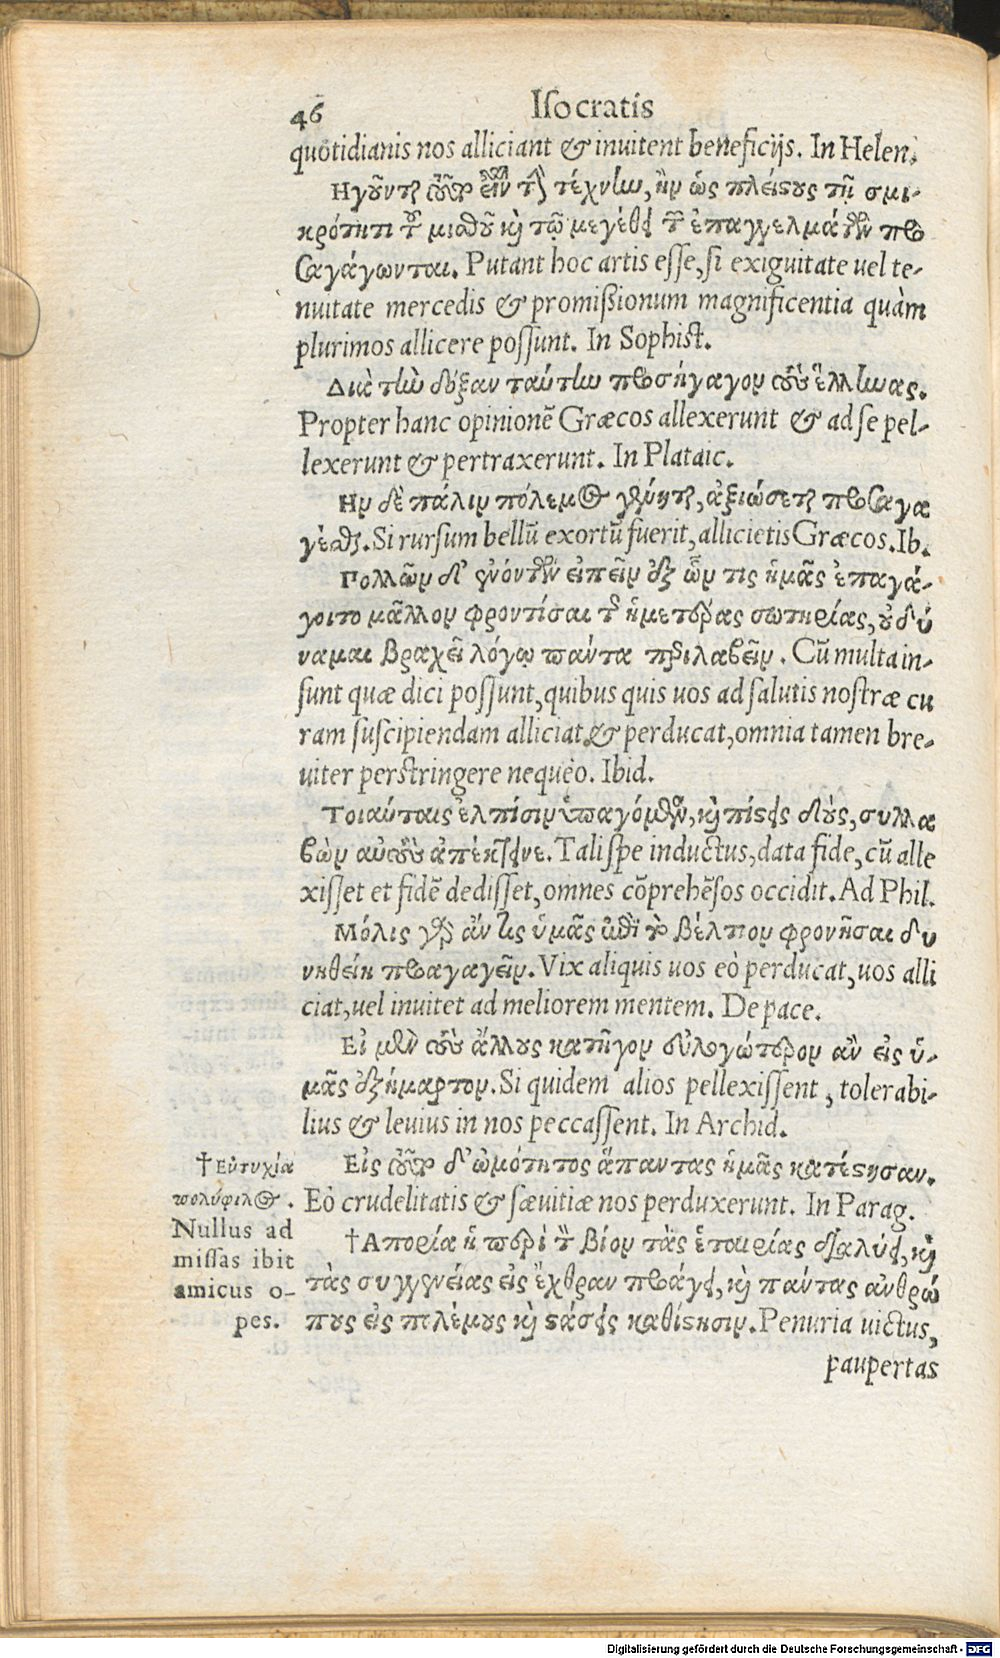 46 Iſocratis
quotidianis nos alliciant & inuitent beneficijs. In Helen.
Ηγοῦντ τοῦτ εἶναι τὴν τέχνην, ἢν ὡς πλείςους τῇ σμι-
κρότητι τοῦ μισθοῦ κὶ τῷ μεγέθει τῶν ἐπαγγελμάτων προ
σαγάγωνται. Putant hoc artis eſſe, ſi exiguitate uel te-
nuitate mercedis & promiſsionum magnificentia quàm
plurimos allicere poſſunt. In Sophiſt.
Διὰ τὴν δόξαν ταύτην προσήγαγον τοὺς ἕλληνας.
Propter hanc opinionē Græcos allexerunt & ad ſe pel-
lexerunt & pertraxerunt. In Plataic.
Ην δὲ πάλιν πόλεμος γένητ, προσαγα
γέσθ. Si rurſum bellū exortū fuerit, allicietis Græcos. Ib.
Πολλῶν δ' ἐνόντων εἰπεῖν ἐξ ὧν τις ἡμᾶς ἐπαγά-
γοιτο μᾶλλον φροντίσαι τῆς ἡμετέρας σωτηρίας, οὐ δύ
ναμαι βραχεῖ λόγῳ πάντα περιλαβεῖν. Cū multa in-
ſunt quæ dici poſſunt, quibus quis uos ad ſalutis noſtræ cu
ram ſuſcipiendam alliciat & perducat, omnia tamen bre-
uiter perſtringere nequeo. Ibid.
Τοιαύταις ἐλπίσιν ὑπαγόμενος, κὶ πίςεις δοὺς, συλλα
βὼν αὐτοὺς ἀπέκτεινε. Tali ſpe inductus, data fide, cū alle
xiſſet et fidē dediſſet, omnes cōprehēſos occidit. Ad Phil.
Μόλις γὰρ ἄν τις ὑμᾶς ἐπὶ τὸ βέλτιον φρονῆσαι δυ
νηθείη προαγαγεῖν. Vix aliquis uos eò perducat, uos alli
ciat, uel inuitet ad meliorem mentem. De pace.
Εἰ μὲν τοὺς ἄλλους κατῆγον εὐλογώτερον ἂν εἰς ὑ-
μᾶς ἐξήμαρτον. Si quidem alios pellexiſſent, tolerabi-
lius & leuius in nos peccaſſent. In Archid.
Εἰς τοῦτ δ' ὠμότητος ἅπαντας ἡμᾶς κατέςησαν.
Eò crudelitatis & ſæuitiæ nos perduxerunt. In Parag.
†Απορία ἡ περὶ τὸν βίον τὰς ἑταιρίας διαλύει, κὶ
τὰς συγγενείας εἰς ἔχθραν προάγει, κὶ πάντας ἀνθρώ
πους εἰς πολέμους κὶ ςάσεις καθίςησιν. Penuria uictus,
paupertas
†Εὐτυχία
πολύφιλος.
Nullus ad
miſſas ibit
amicus o-
pes.
Digitalisierung gefördert durch die Deutsche Forschungsgemeinschaft - DFG